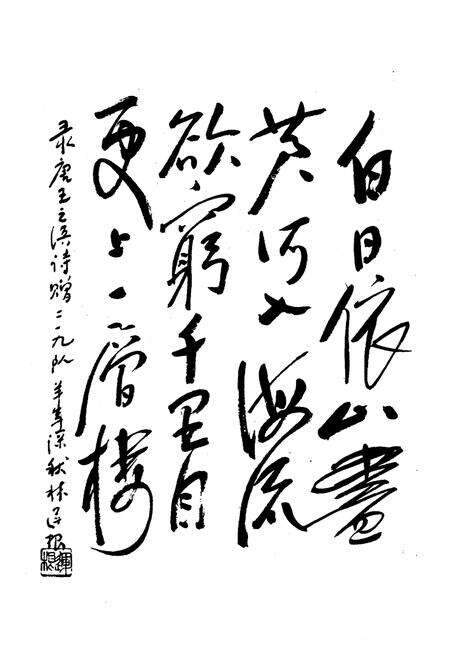 白日依山盡
黄河入海流
欲窮千里目
更上一層楼
录唐王之涣诗赠二一九队 羊年深秋 林